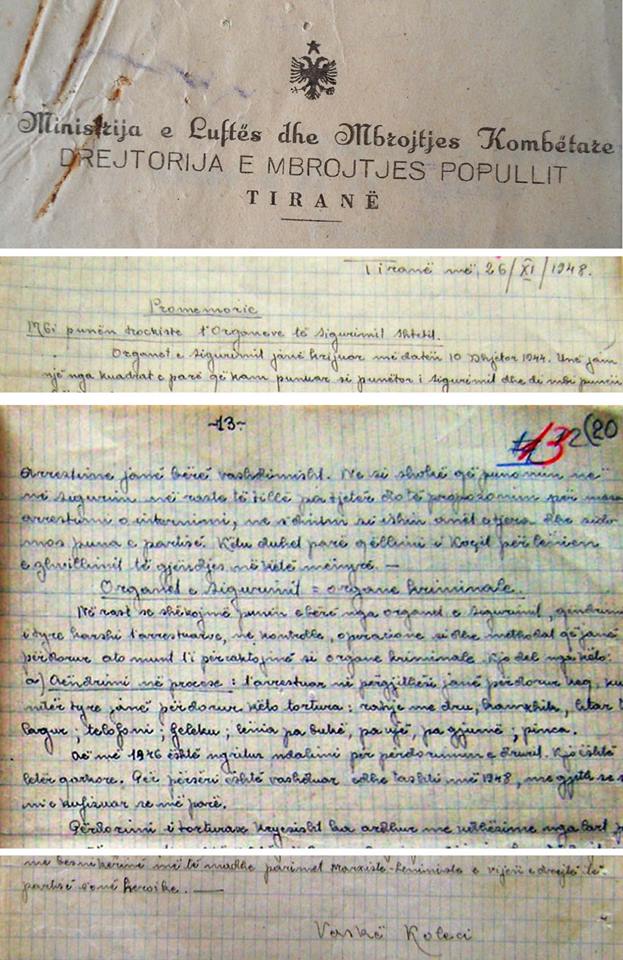 Ministrija e Luftës dhe Mbrojtjes Kombëtare
DREJTORIJA E MBROJTJES POPULLIT
TIRANË
Tiranë më, 26/XI/1948.
Promemorie
Mbi punën trockiste t'Organeve të sigurimit shtetit.
Organet e sigurimit janë krijuar me datën 10 Dhjetor 1944. Unë jam
një nga kuadrat e parë që kam punuar si punëtor i sigurimit dhe di mbi punën
-13-
132 (20
arrestime janë bërë vashdimisht. Ne si shokë që punonim në
në sigurim në raste të tillë pa tjetër do të propozonim për masa
arrestimi o internimi, ne s'dinim si ishin anët e tjera dhe sido
mos puna e partisë. Këtu duhet parë qëllimi i Koçit për lënien
e zhvillimit të gjendjes në këtë mënyrë. —
Organet e Sigurimit = organe kriminale.
Në rast se shikojmë punën e bërë nga organet e sigurimit, qëndrimin
i tyre karshi t'arrestuarve, në kontrolle, operacione si dhe methodat që janë
përdorur ato munt t'i përcaktojmë si organe kriminale. Kjo del nga këto:
a) Qëndrimi në procese: t'arrestuar në përgjithësi janë përdorur keq,
ndër tyre janë përdorur këto tortura: rahje me dru, kamxhik, litar
lagur; telefoni; geleku; lënia pa bukë, pa ujë, pa gjumë, pinca.
Që më 1946 është ngritur ndalimi për përdorimin e drurit. Kjo është
letër qarkore. Por përsëri është vashduar edhe tashti më 1948, me gjith se
mi e kufizuar se më parë.
Përdorimi i torturave kryesisht ka ardhur me udhëzime nga lart
me besnikërinë më të madhe parimet Marxiste-Leniniste e vijën e drejtë të
partisë s'onë heroike. —
Vaskë Koleci